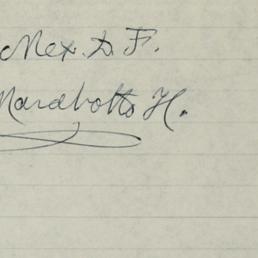 Mex. D. F.
Marabotto H.